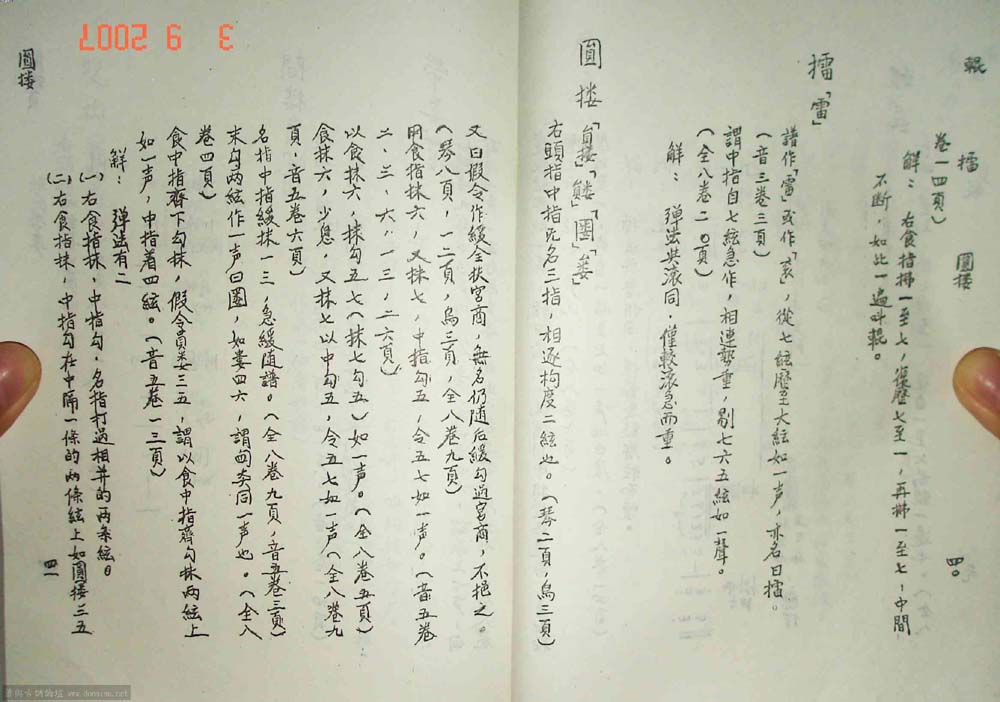 輥 擂 圓摟 四〇
卷一四頁）
解：右食指拂一至七，復歷七至一，再拂一至七，中間
不断，如此一遍叫輥。
擂「雷」
譜作「雷」或作「」，從七絃歷至大絃如一声，亦名曰擂。
（音三卷三頁）
謂中指自七絃急作，相連勢重，剔七六五絃如一聲。
（全八卷二〇頁）
解：弹法與滚同，僅較滚急而重。
圓摟「員摟」「」「圕」「婁」
右頭指中指旡名三指，相逐拘度二絃也。（琴二頁，烏三頁）
又曰假令作緩全扶宮商，無名仍随后緩勾过宮商，不挹之。
（琴八頁，一二頁，烏三頁，全八卷九頁）
用食指抹六，又抹七，中指勾五，令五七如一声。（音五卷
二．三．六．一三，二六頁）
以食抹六，抹勾五七（抹七勾五）如一声。（全八卷五頁）
食抹六，少息，又抹七以中勾五，令五七如一声（全八卷九
頁，音五卷六頁）
名指中指緩抹一三，急緩随譜。（全八卷九頁，音五卷三頁）
末勾两絃作一声曰圕，如婁四六，謂同一声也。（全八
卷四頁）
食中指齊下勾抹，假令員婁三五，謂以食中指齊勾抹两絃上
如一声，中指着四絃。（音五卷一三頁）
解：弹法有二
（一）右食指抹，中指勾，名指打过相并的两条絃。
（二）右食指抹，中指勾在中隔一條的两條絃上如圓摟三五
圓摟 四一
3 9 2007